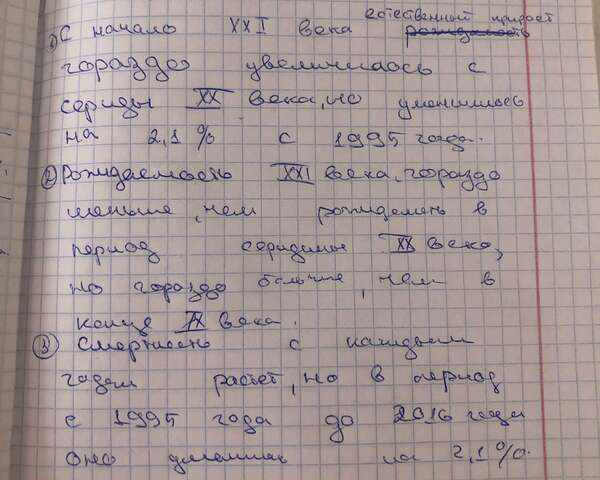 1) С начало XXI века естественный прирост
гораздо увеличилось с
середы XX века, но уменшилось
на 2,1 % с 1995 года.
2) Рождаемость XXI века, гораздо
меньше, чем рождемень в
период середины XX века,
но гораздо больше, чем в
конце XX века.
3) Смертность с каждым
годом растет, но в период
с 1995 года до 2016 года
она на 2,1%.